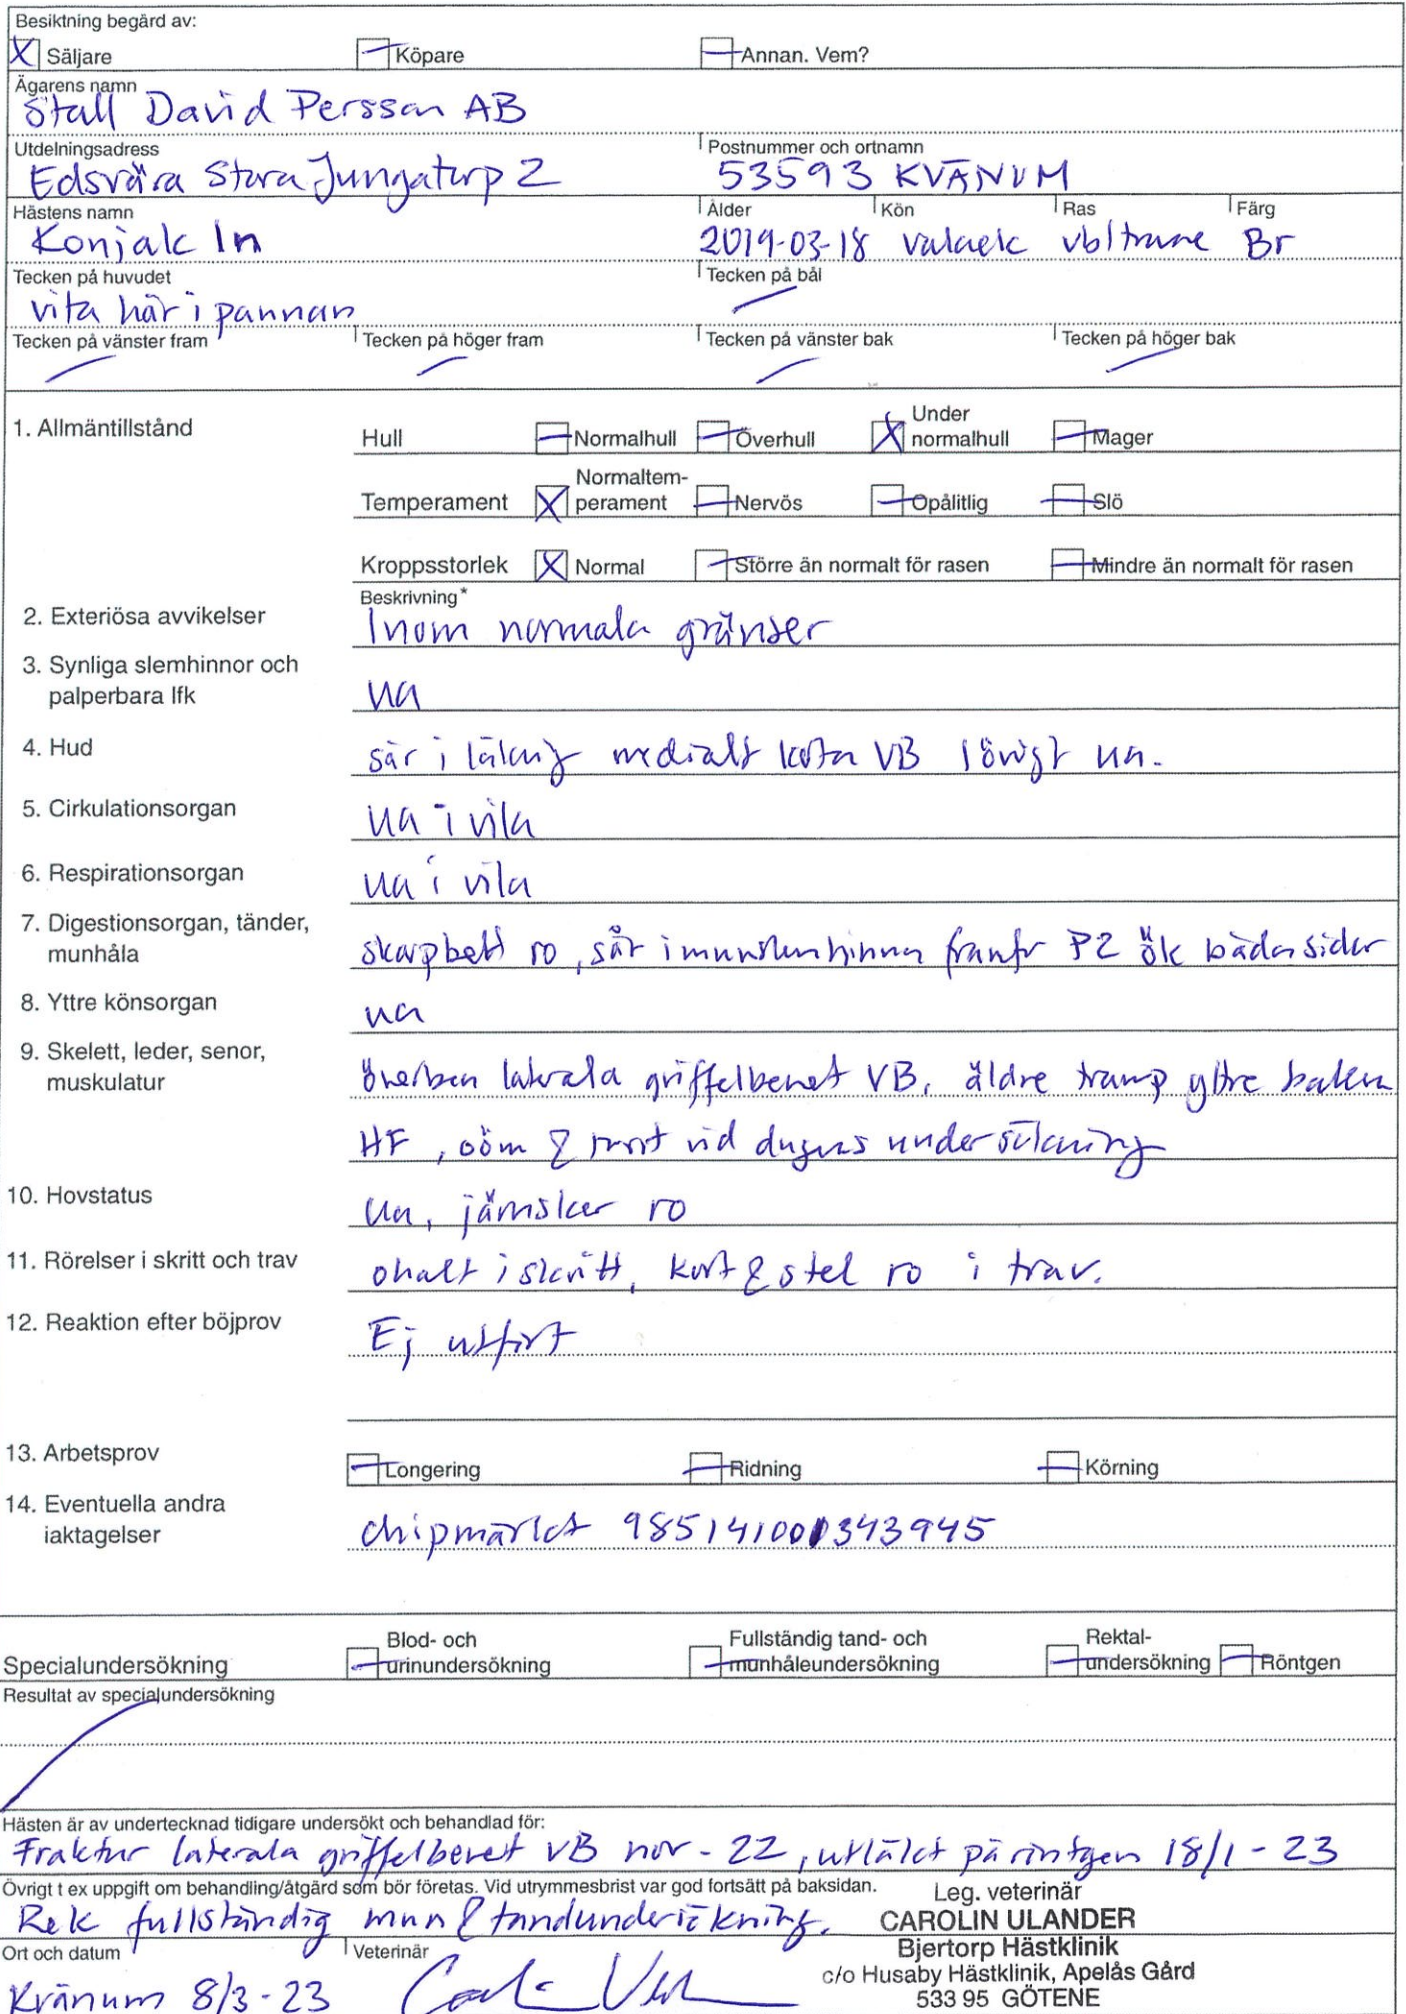 Besiktning begärd av:
X Säljare Köpare Annan. Vem?
Ägarens namn
Stall David Persson AB
Utdelningsadress Postnummer och ortnamn
Edsvära Stora Jungatorp 2 53593 KVÄNUM
Hästens namn Ålder Kön Ras Färg
Konjak In 2019-03-18 valack vbltrav Br
Tecken på huvudet Tecken på bål
vita hår i pannan
Tecken på vänster fram Tecken på höger fram Tecken på vänster bak Tecken på höger bak
1. Allmäntillstånd Hull Normalhull Överhull X Under normalhull Mager
Temperament X Normaltem-perament Nervös Opålitlig Slö
Kroppsstorlek X Normal Större än normalt för rasen Mindre än normalt för rasen
Beskrivning*
2. Exteriösa avvikelser Inom normala gränser
3. Synliga slemhinnor och
palperbara lfk ua
4. Hud sår i läkning medialt kota VB i övrigt ua.
5. Cirkulationsorgan ua i vila
6. Respirationsorgan ua i vila
7. Digestionsorgan, tänder,
munhåla skarpbett ro, sår i munslemhinna framför P2 ök båda sidor
8. Yttre könsorgan ua
9. Skelett, leder, senor,
muskulatur överben laterala griffelbenet VB, äldre tramp yttre ballen
HF, oöm & torrt vid dagens undersökning
10. Hovstatus ua, järnskor ro
11. Rörelser i skritt och trav ohalt i skritt, kort & stel ro i trav.
12. Reaktion efter böjprov Ej utfört
13. Arbetsprov Longering Ridning Körning
14. Eventuella andra
iaktagelser chipmärkt 985141001343945
Specialundersökning Blod- och urinundersökning Fullständig tand- och munhåleundersökning Rektal-undersökning Röntgen
Resultat av specialundersökning
Hästen är av undertecknad tidigare undersökt och behandlad för:
Fraktur laterala griffelbenet VB nov-22, utläkt på röntgen 18/1-23
Övrigt t ex uppgift om behandling/åtgärd som bör företas. Vid utrymmesbrist var god fortsätt på baksidan.
Rek fullständig mun & tandundersökning.
Leg. veterinär
CAROLIN ULANDER
Bjertorp Hästklinik
c/o Husaby Hästklinik, Apelås Gård
533 95 GÖTENE
Ort och datum Veterinär
Kvänum 8/3-23